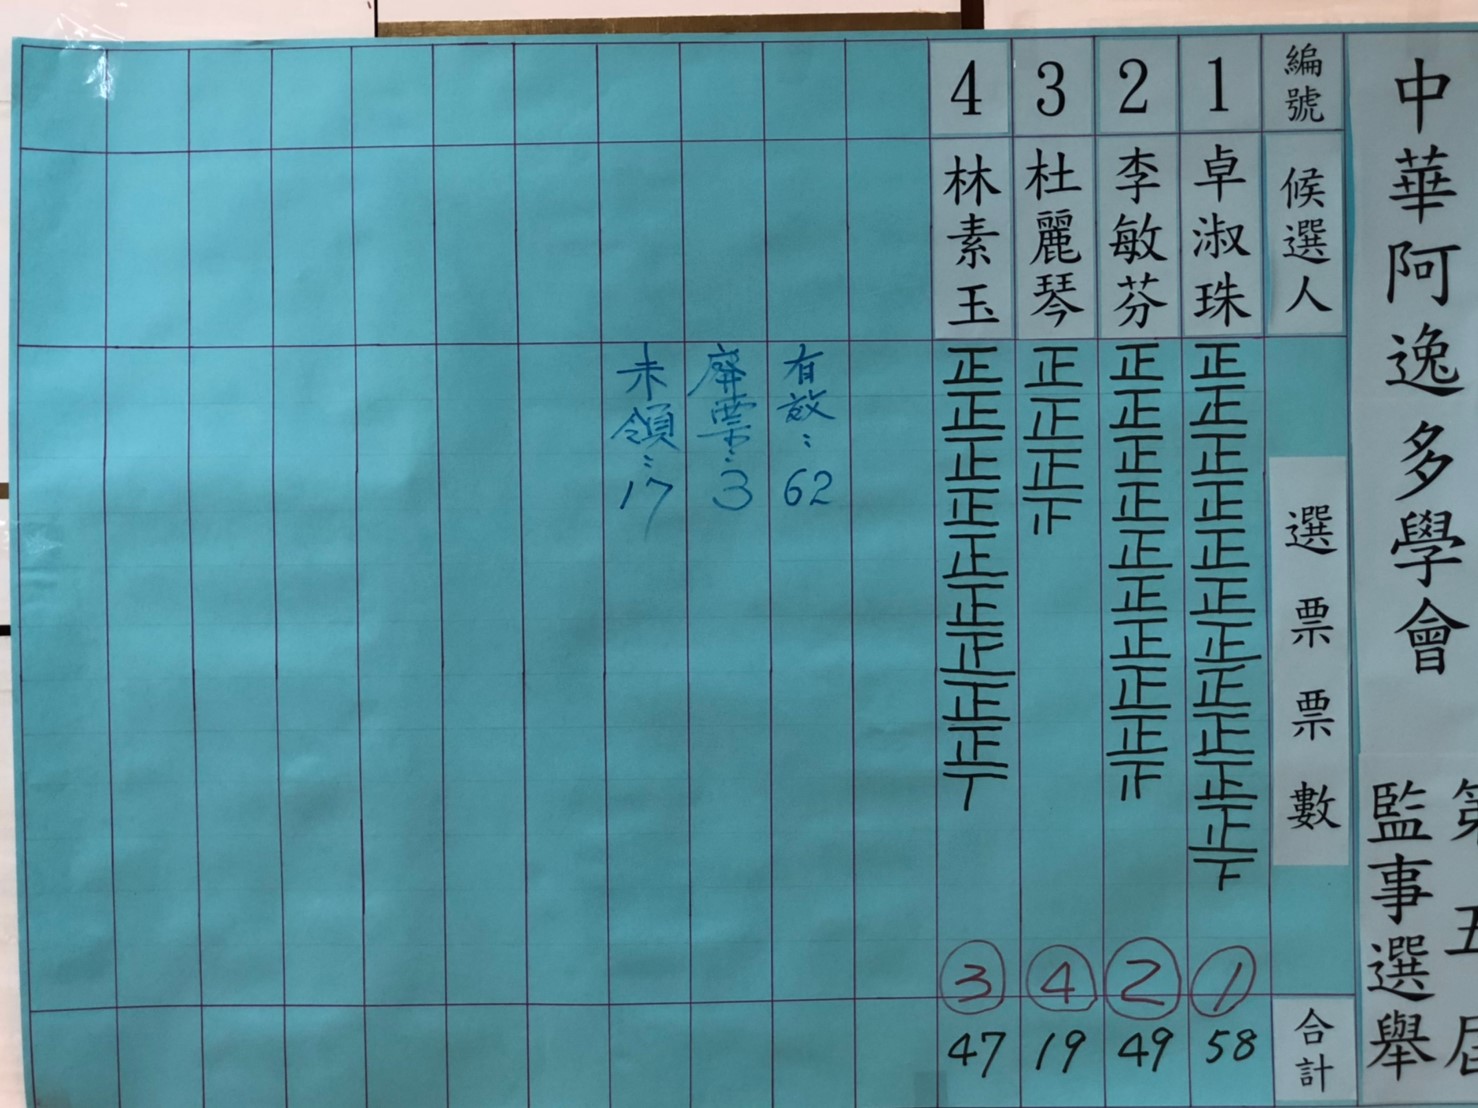 中華阿逸多學會
第五屆
監事選舉
編號
候選人
選票票數
合計
1
卓淑珠
正正正正正正正正正正正下
①
58
2
李敏芬
正正正正正正正正正止
②
49
3
杜麗琴
正正正止
④
19
4
林素玉
正正正正正正正正正丅
③
47
有效：62
廢票：3
未領：17